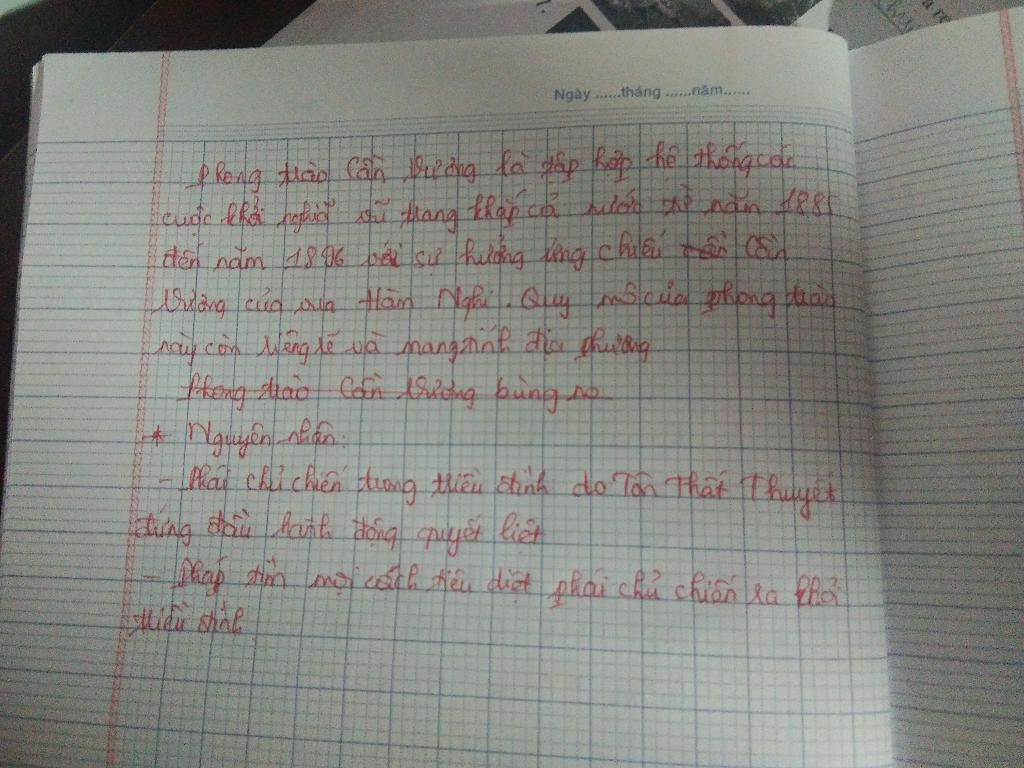 Ngày ......tháng ......năm......
Phong trào Cần Vương là tập hợp hệ thống các
cuộc khởi nghĩa vũ trang khắp cả nước từ năm 1885
đến năm 1896 với sự hưởng ứng chiếu Cần
Vương của vua Hàm Nghi. Quy mô của phong trào
này còn riêng rẽ và mang tính địa phương
Phong trào Cần Vương bùng nổ
* Nguyên nhân:
- Phái chủ chiến trong triều đình do Tôn Thất Thuyết
đứng đầu hành động quyết liệt
- Pháp tìm mọi cách tiêu diệt phái chủ chiến ra khỏi
triều đình